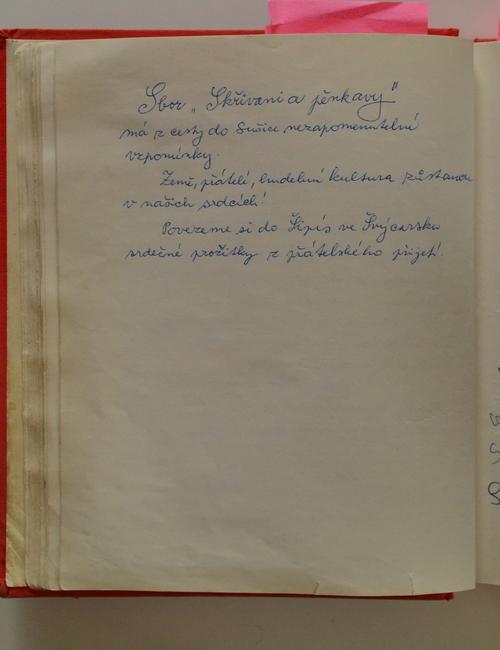 Sbor „Skřivani a pěnkavy"
má z cesty do Sušice nezapomenutelné
vzpomínky.
Země, přátelé, hudební kultura zůstanou
v našich srdcích!
Povezeme si do Švýcarska
srdečné prožitky z přátelského přijetí.